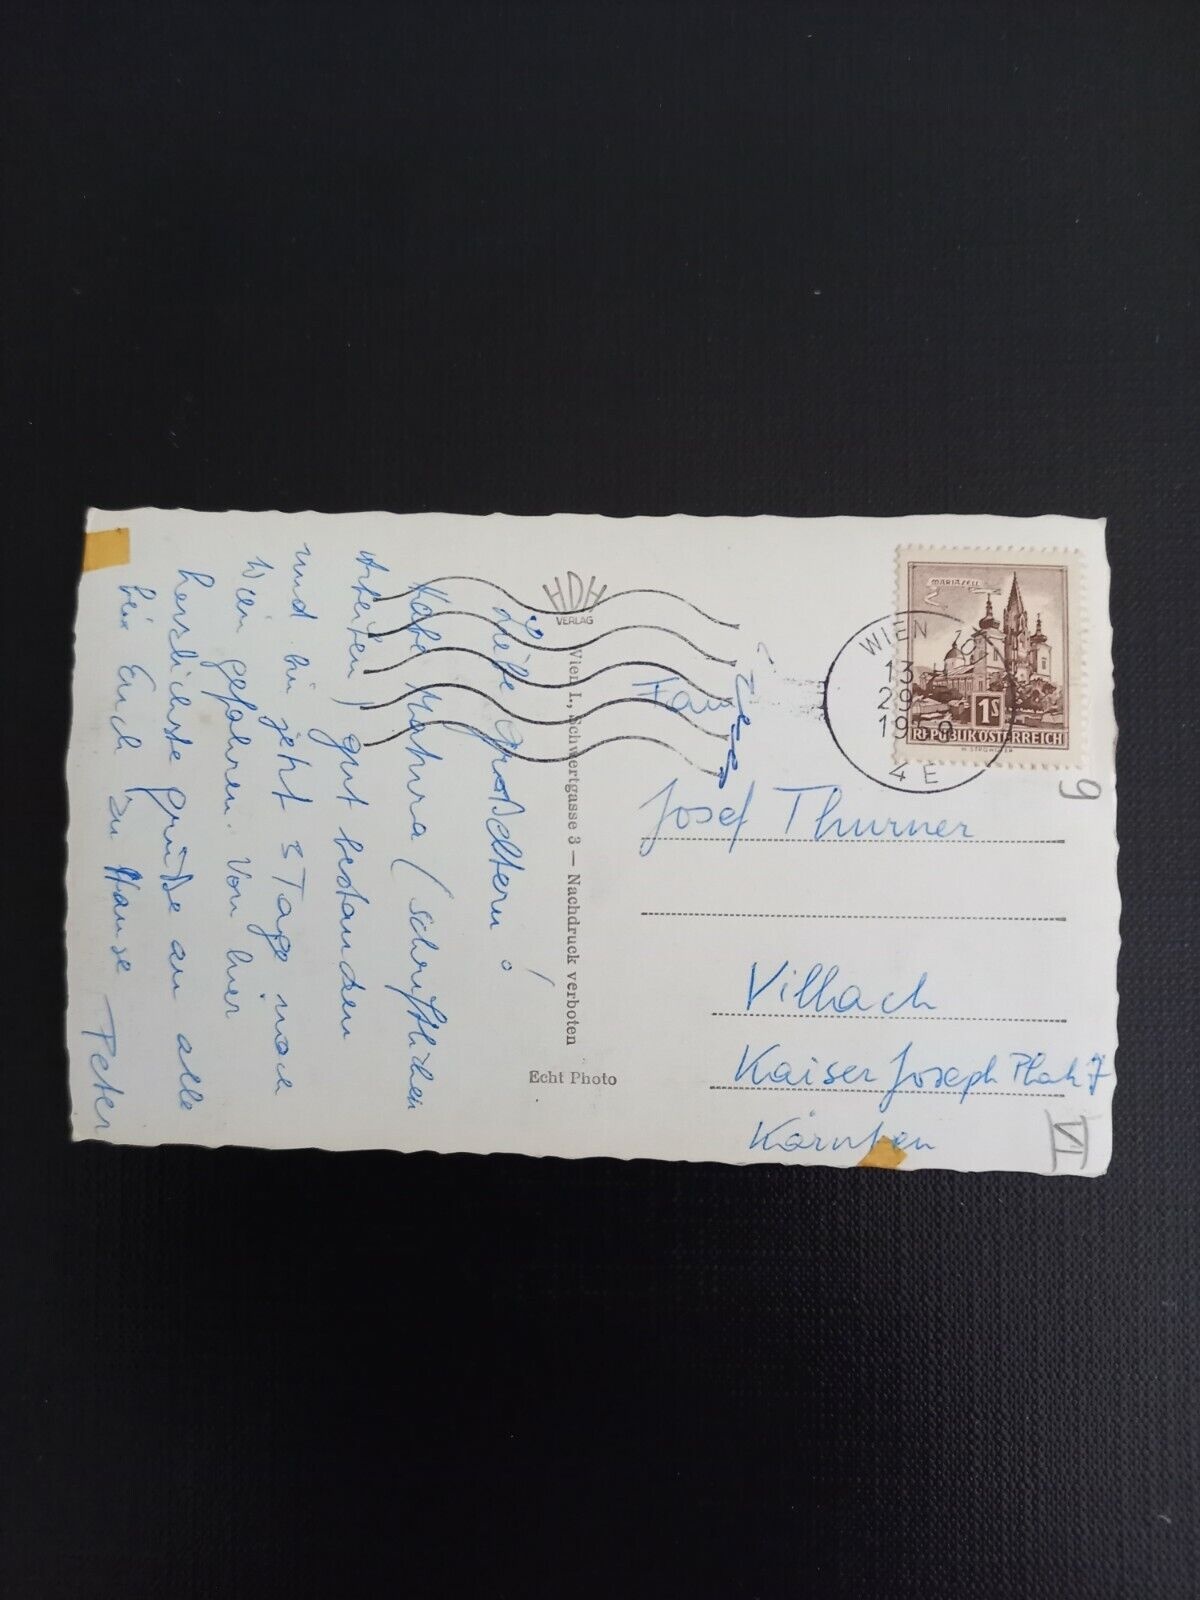 Liebe Großeltern!
Habe Mathura (schriftlichen
Arbeiten) gut bestanden
und bin jetzt 3 Tage nach
Wien gefahren. Von hier
herzlichste Grüße an alle
bei Euch zu Hause
Peter
HDH
VERLAG
Wien I., Schwertgasse 3 — Nachdruck verboten
Echt Photo
MARIAZELL
1S
REPUBLIK ÖSTERREICH
WIEN 101
13
29
19
4 E
Josef Thurner
Villach
Kaiser Joseph Platz 7
Kärnten
9
VI